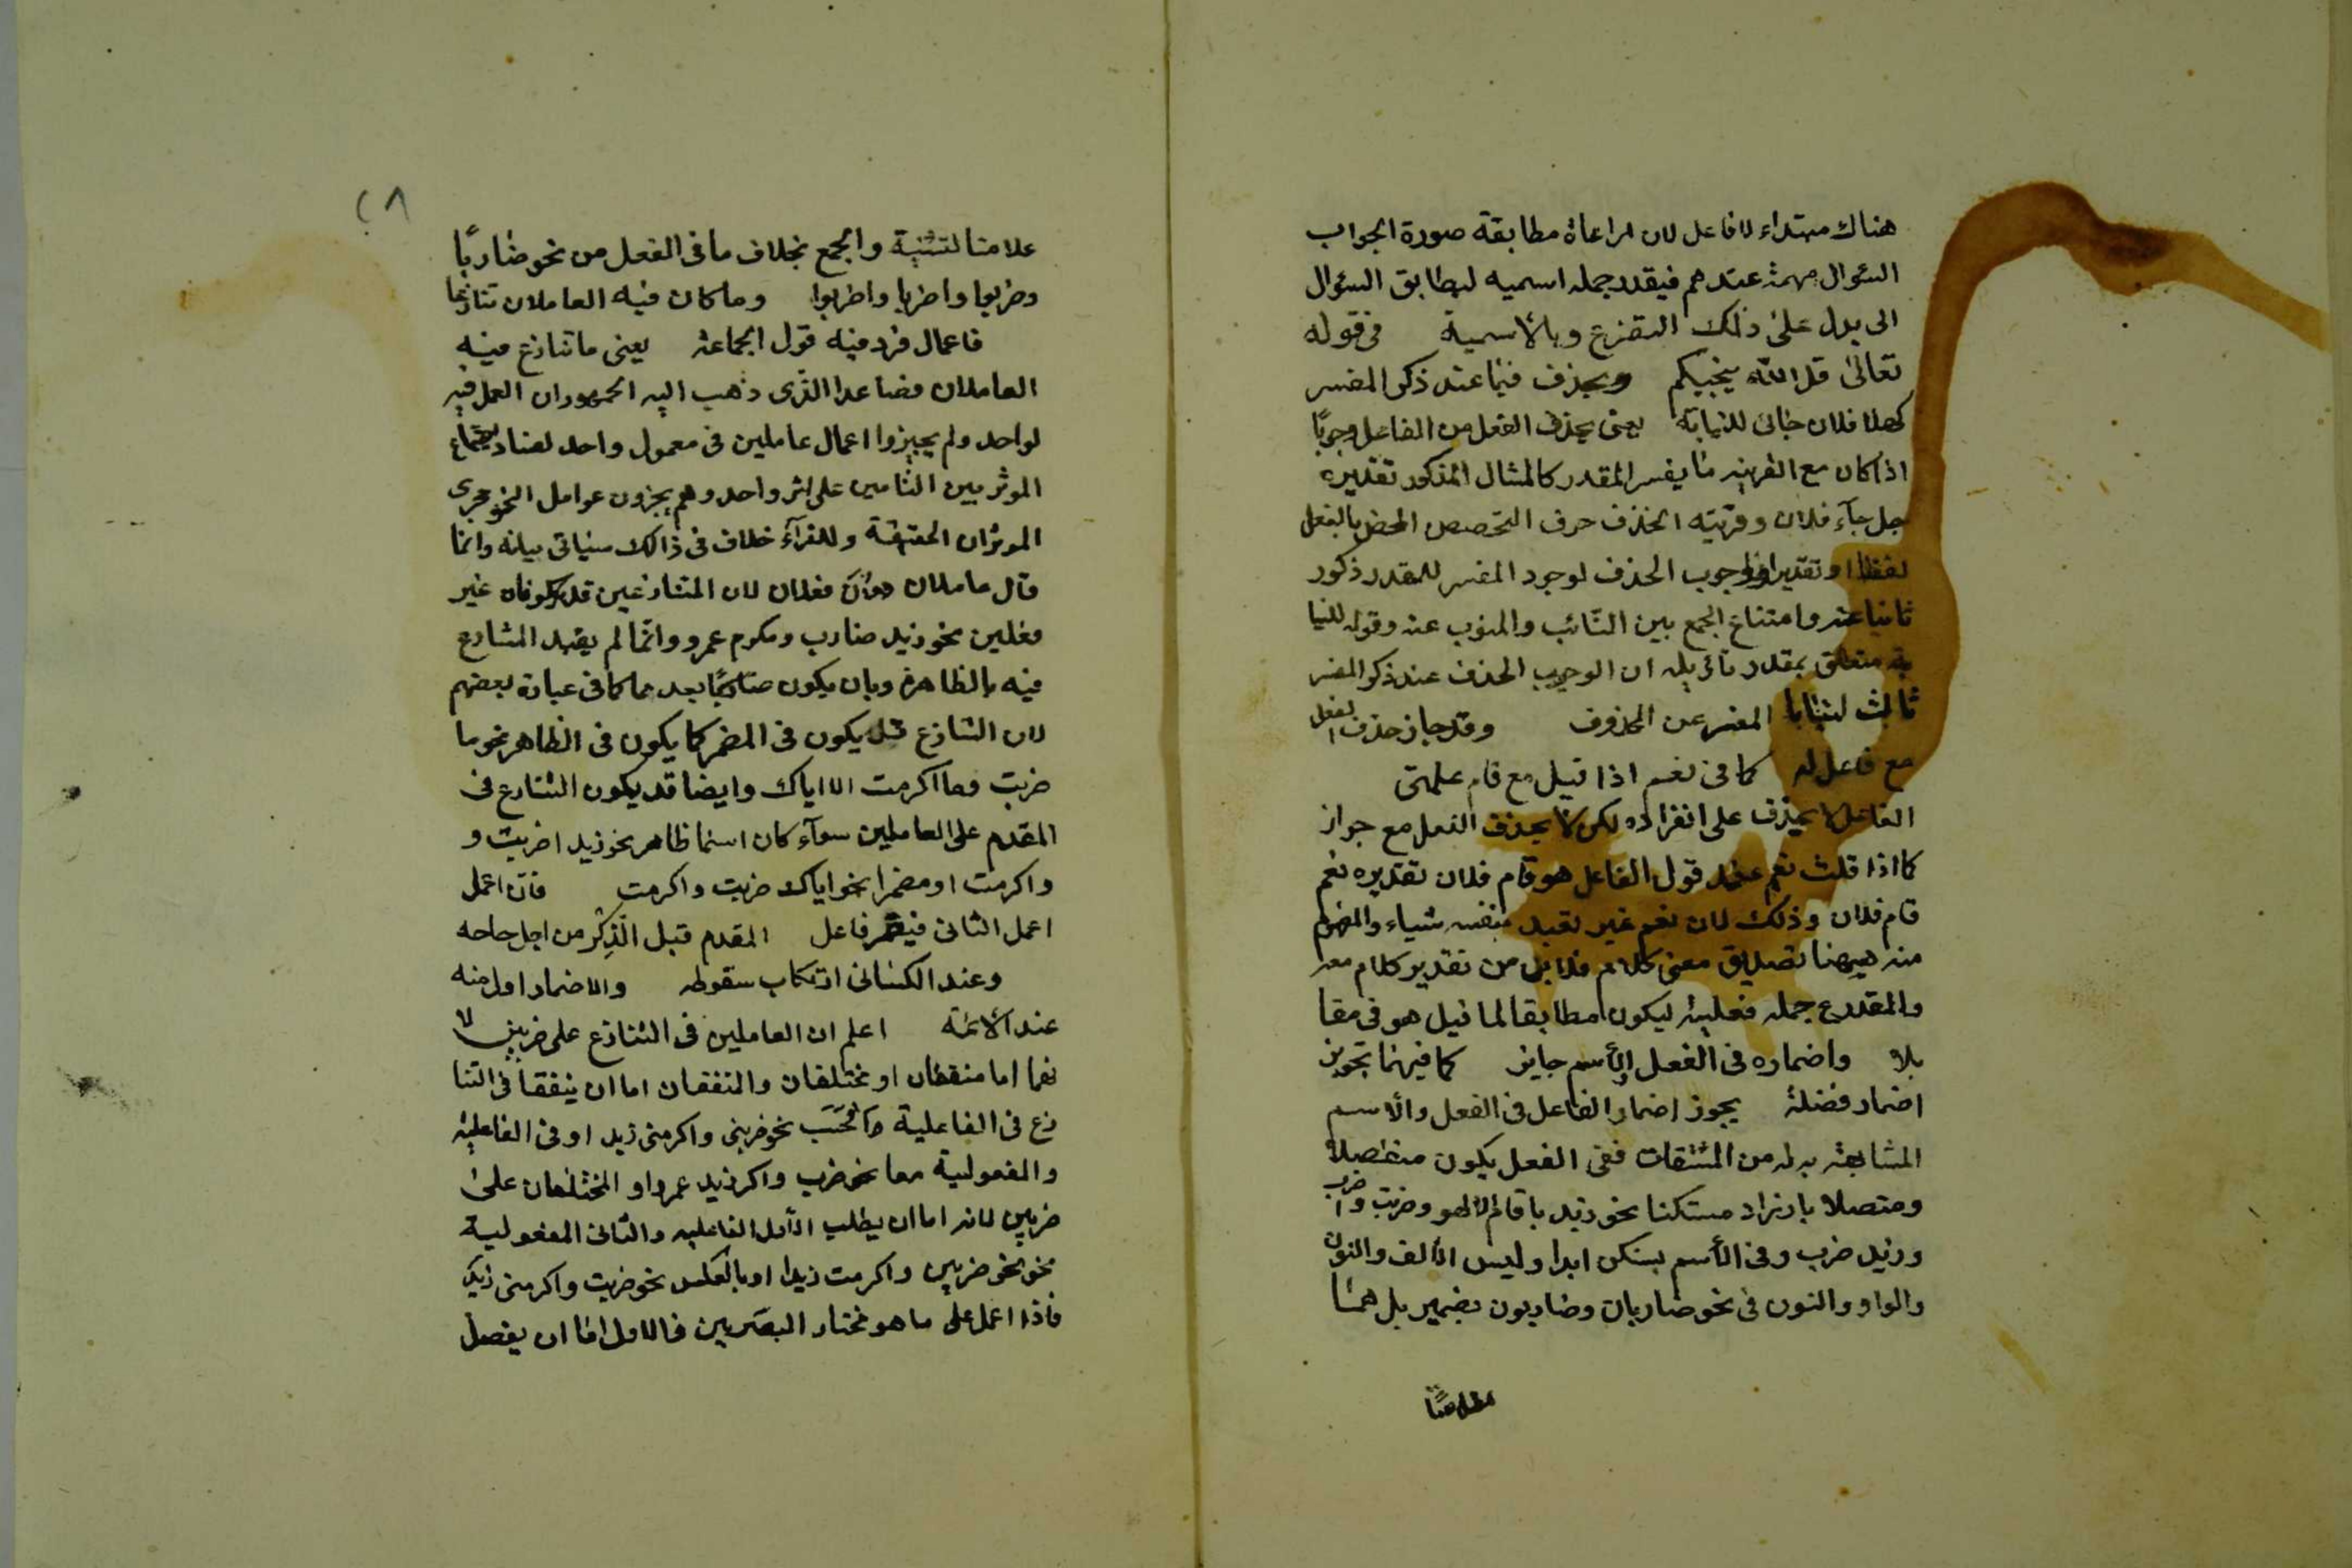 هناك مبتداء لا فاعل لان مراعاة مطابقة صورة الجواب
السئوال مهمة عندهم فيقدر جمله اسميه ليطابق السئوال
الى بدل على ذلك التفزع وبالاسمية في قوله
تعالى قل الله ينجيكم ويحذف فيما عند ذكر المفسر
كهلا فلان جائ للنيابة يعنى يحذف الفعل من الفاعل وجوبًا
اذا كان مع القرينه ما يفسر المقدر كالمثال المذكور تقديره
جل جآء فلان وقرينه الحذف حرف التحصيص المحض بالفعل
لفظا او تقديرا ولوجوب الحذف لوجود المفسر للمقدر ذكور
ثانيا عنه وامتناع الجمع بين النّائب والمنوب عنه وقوله للنيا
بة متعلق بمقدر ان الوجوب الحذف عند ذكر المفسر
ثابت لنيابا المفسر عن المحذوف وقد جاز حذف الفعل
مع فاعل له كما في نعم اذا قيل مع قام علمتى
الفاعل لا يحذف على انفراده لكن يحذف الفعل مع جواز
كما اذا قلت نعم عند قول القاعل هو قام فلان تقديره نعم
قام فلان وذلك لان نعم غير تقيد بنفسه شياء والمفهوم
منه هيهنا تصديق معنى كلام فلا بل من تقدير كلام معه
والمقدرع جمله فعلية ليكون مطابقا لما قيل هو في مقا
بلا واضماره في الفعل والأسم جايز كما فيهما تجويز
اضمار فضلة يجوز اضمار الفاعل في الفعل والاسم
المشابهة به له من المشتقات ففى الفعل يكون منفصلا
ومتصلا بارزا د مستكنا نحو زيد باقائم الا هو وضربت واضرب
وزيد ضرب وفى الأسم بستكن ابدا وليس الألف والنون
والواو والنون في نحو ضاربان وضاربون بضمير بل هما
علامتا لتثنية والجمع بخلاف ما في الفعل من نحو ضاربًا
وضربوا واضربا واضربوا وما كان فيه العاملان تنازعا
فاعمال فرد فيه قول الجماعة يعنى ما تنازع فيه
العاملان فصاعدا الذى ذهب اليه الجمهور ان العمل فيه
لواحد ولم يجيزوا اعمال عاملين في معمول واحد لفساد اجتماع
الموثر بين التامين على اثر واحد وهم يجزون عوامل النحو مجرى
الموثران الحقيقة وللفرآء خلاف في ذالك سيأتى بيانه وانما
قال عاملان دون فعلان لان المتنازعين قد يكونان غير
فعلين نحو زيد ضارب ومكرم عمرو وانما لم يقيد المشارع
فيه بالظاهرة وبان يكون بعد هما كما في عبارة بعضهم
لان التنازع قد يكون في المضمر كما يكون في الظاهر نحو ما
ضربت وما اكرمت الا اياك وايضا قد يكون التنازع في
المقدم على العاملين سوآء كان اسما ظاهر نحو زيد اضربت و
واكرمت او مضمرا نحو اياك ضربت واكرمت فان اعمل
اعمل الثانى فيضمر فاعل المقدم قبل الذِكر من اجل حاحه
وعند الكسائى ارتكاب سقوطه والاضمار اول منه
عند الائمة اعلم ان العاملين في التنازع على ضربين لا
نهما اما متفقان او مختلفان والمتفقان اما ان يتفقا في التنا
زع في الفاعلية نحو ضربنى واكرمنى زيد او في الفاعلية
والمفعولية معا نحو ضرب واكر زيد عمرا و المختلفان على
ضربين لانه اما ان يطلب الأول الفاعليه والثانى المفعولية
نحو نحو ضربين واكرمت زيدا او بالعكس نحو ضربت واكرمنى زيد
فاذا اعمل على ما هو مختار البصريين فالاول اما ان يفصل